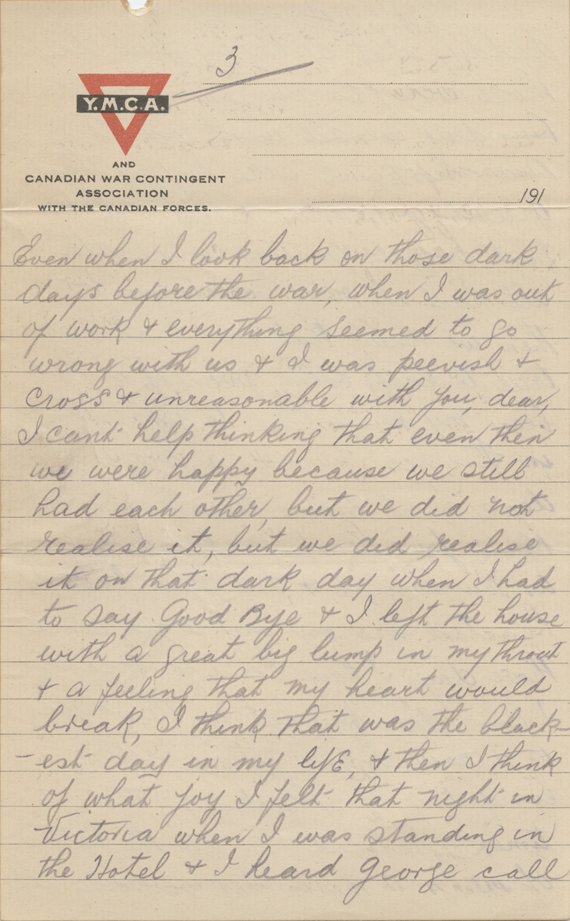 3
Y.M.C.A.
AND
CANADIAN WAR CONTINGENT
ASSOCIATION
WITH THE CANADIAN FORCES.
191
Even when I look back on those dark
days before the war, when I was out
of work & everything seemed to go
wrong with us & I was peevish &
cross & unreasonable with you, dear,
I cant help thinking that even then
we were happy because we still
had each other, but we did not
realise it, but we did realise
it on that dark day when I had
to say Good Bye & I left the house
with a great big lump in my throat
& a feeling that my heart would
break, I think that was the black-
-est day in my life, & then I think
of what joy I felt that night in
Victoria when I was standing in
the Hotel & I heard George call